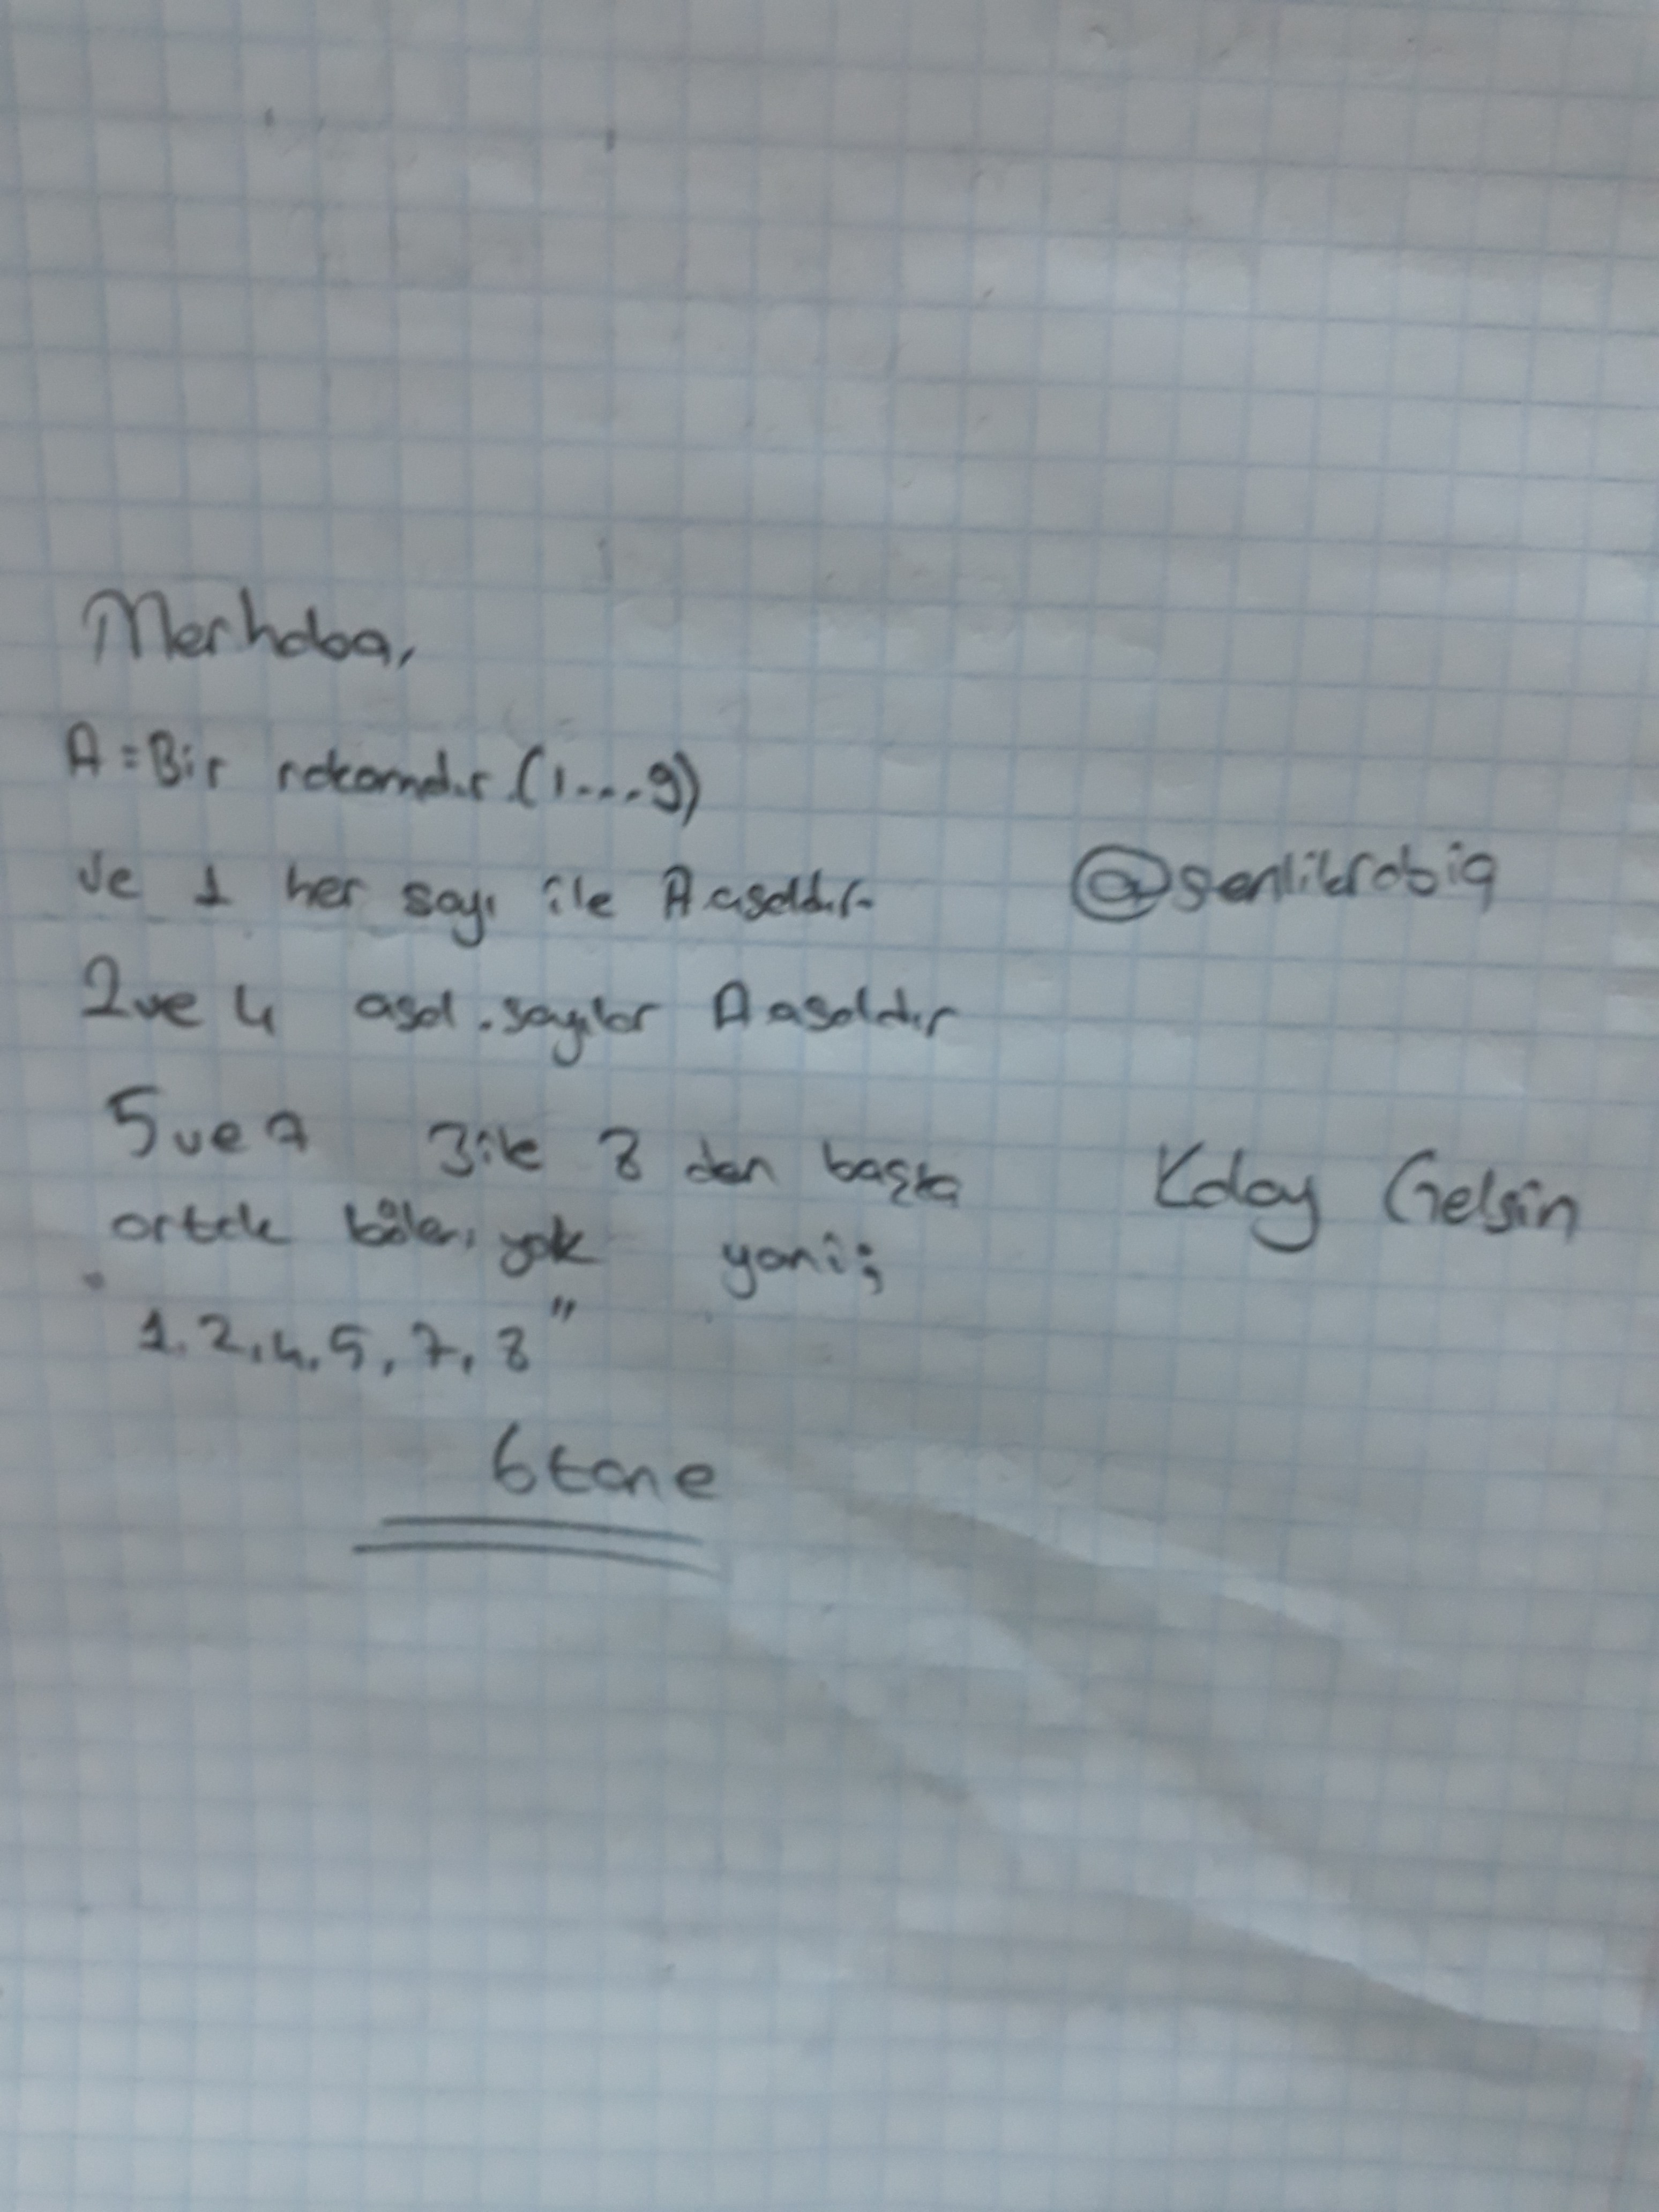 Merhaba,
A = Bir rakamdır. (1....9)
ve 1 her sayı ile Aasaldır.
2 ve 4 asal. sayılar Aasaldır
@senlikrabia
5 ve 7 3 ile 8 den başka
ortak böleni yok yani;
Kolay Gelsin
"1, 2, 4, 5, 7, 8"
6 tane